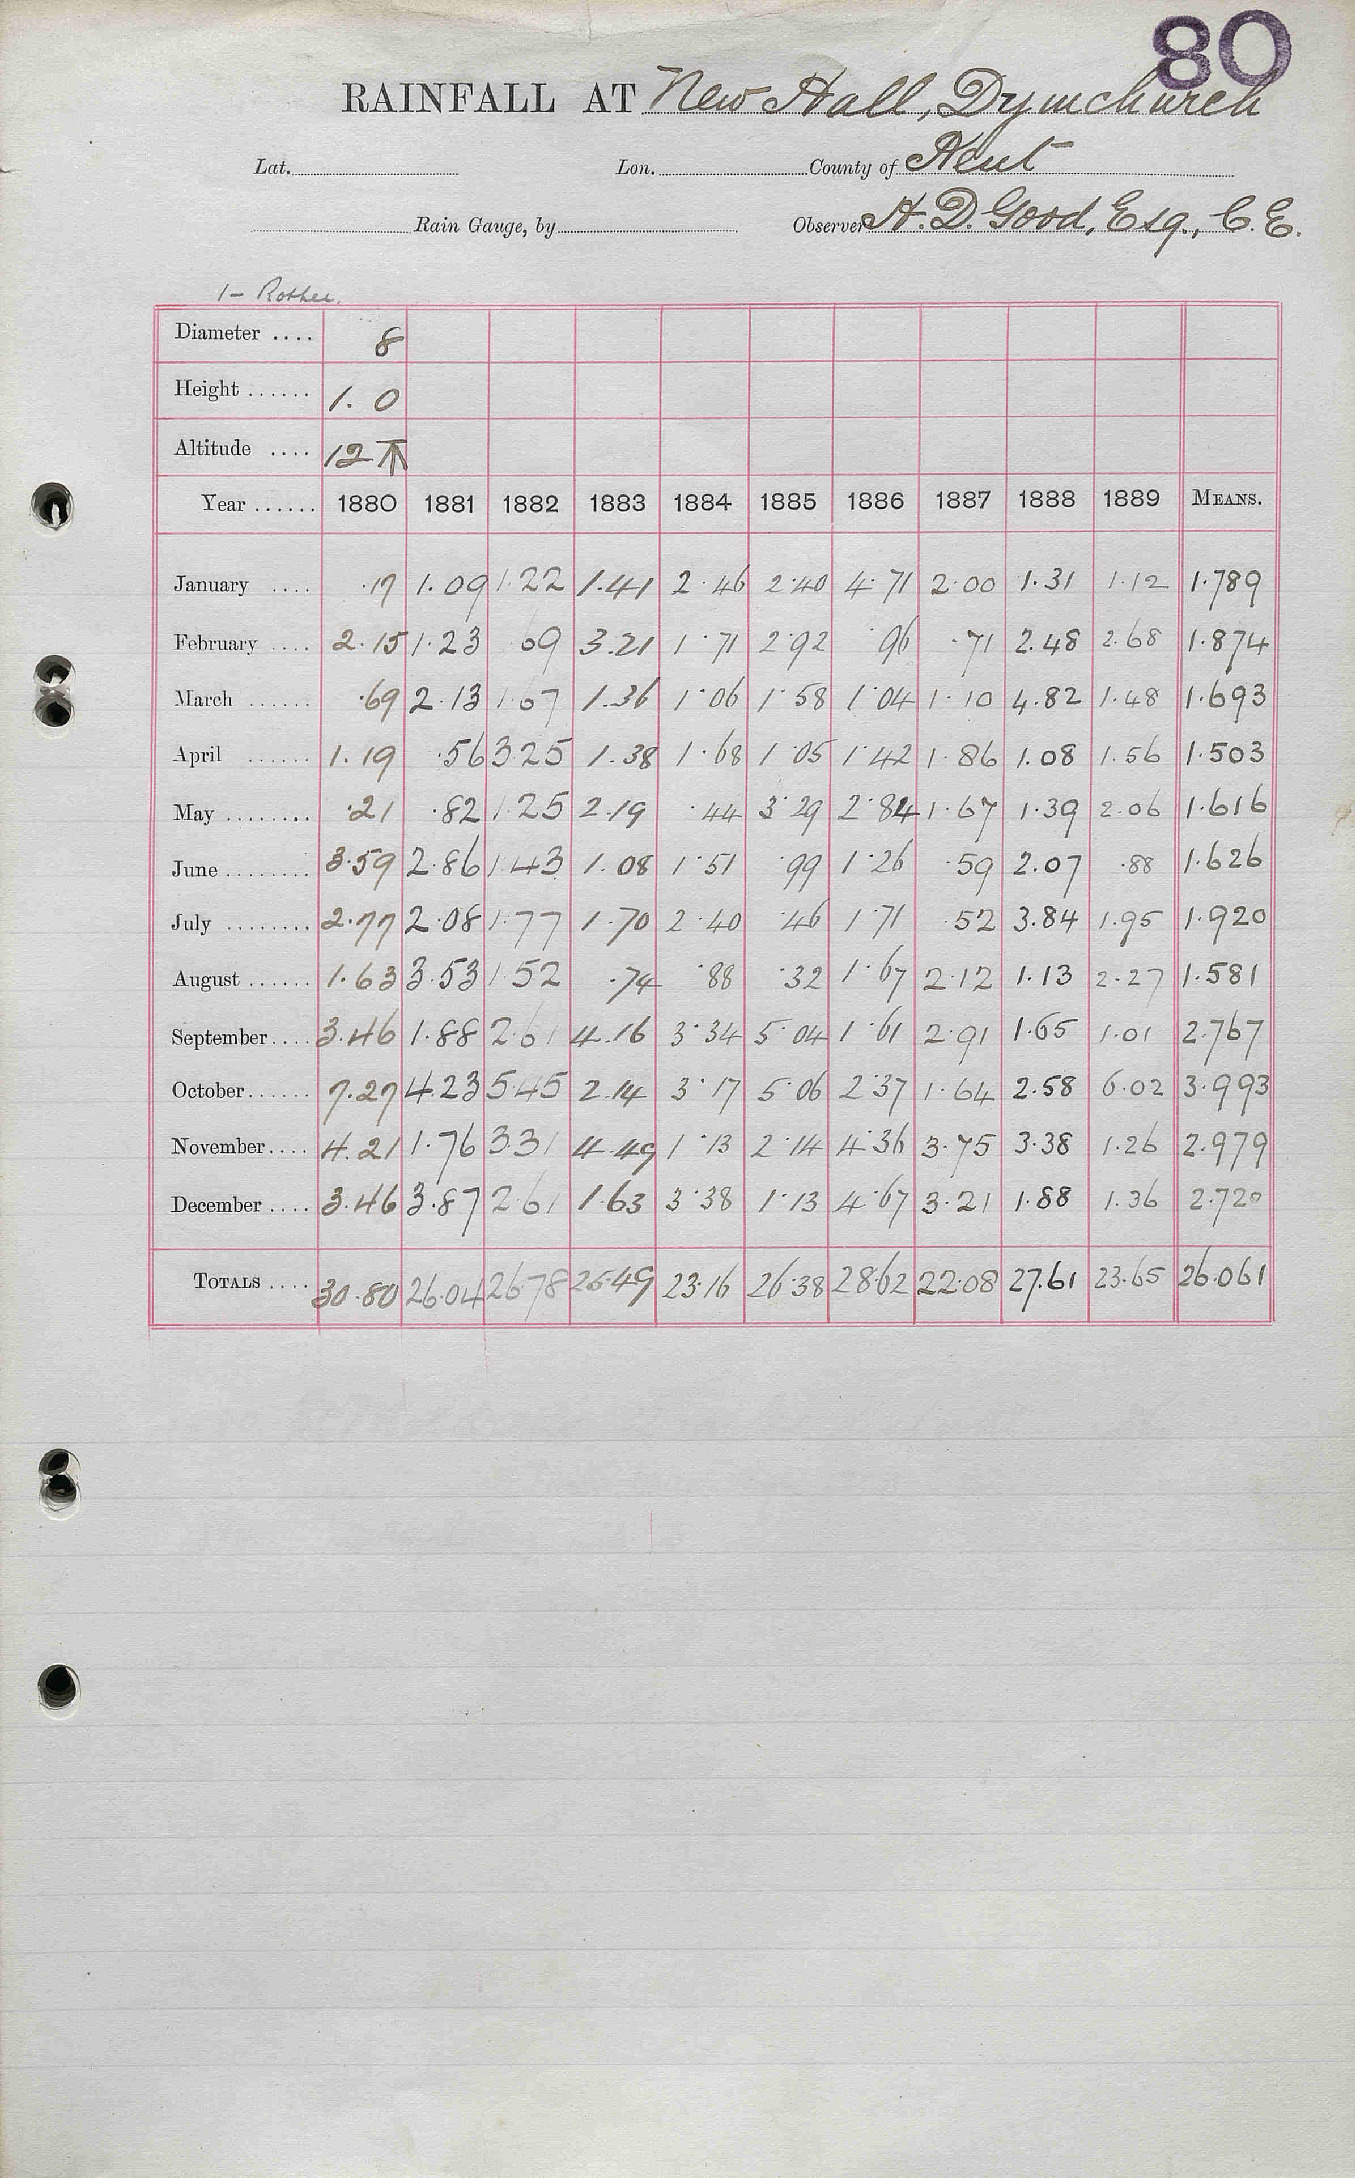 80
RAINFALL AT New Hall, Dymchurch
Lat. Lon. County of Kent
Rain Gauge, by Observer H. D. Good, Esq., C. E.
1 – Rother.
Diameter .... 8
Height ...... 1. 0
Altitude .... 12 ↑
Year ...... 1880 1881 1882 1883 1884 1885 1886 1887 1888 1889 MEANS.
January .... .17 1.09 1.22 1.41 2.46 2.40 4.71 2.00 1.31 1.12 1.789
February .... 2.15 1.23 69 3.21 1.71 2.92 .96 .71 2.48 2.68 1.874
March ...... .69 2.13 1.67 1.36 1.06 1.58 1.04 1.10 4.82 1.48 1.693
April ...... 1.19 .56 3.25 1.38 1.68 1.05 1.42 1.86 1.08 1.56 1.503
May ........ .21 .82 1.25 2.19 .44 3.29 2.84 1.67 1.39 2.06 1.616
June ........ 3.59 2.86 1.43 1.08 1.51 .99 1.26 .59 2.07 .88 1.626
July ........ 2.77 2.08 1.77 1.70 2.40 .46 1.71 .52 3.84 1.95 1.920
August ...... 1.63 3.53 1.52 .74 .88 .32 1.67 2.12 1.13 2.27 1.581
September .... 3.46 1.88 2.61 4.16 3.34 5.04 1.61 2.91 1.65 1.01 2.767
October ...... 7.27 4.23 5.45 2.14 3.17 5.06 2.37 1.64 2.58 6.02 3.993
November .... 4.21 1.76 3.31 4.49 1.13 2.14 4.36 3.75 3.38 1.26 2.979
December .... 3.46 3.87 2.61 1.63 3.38 1.13 4.67 3.21 1.88 1.36 2.720
TOTALS .... 30.80 26.04 26.78 25.49 23.16 26.38 28.62 22.08 27.61 23.65 26.061